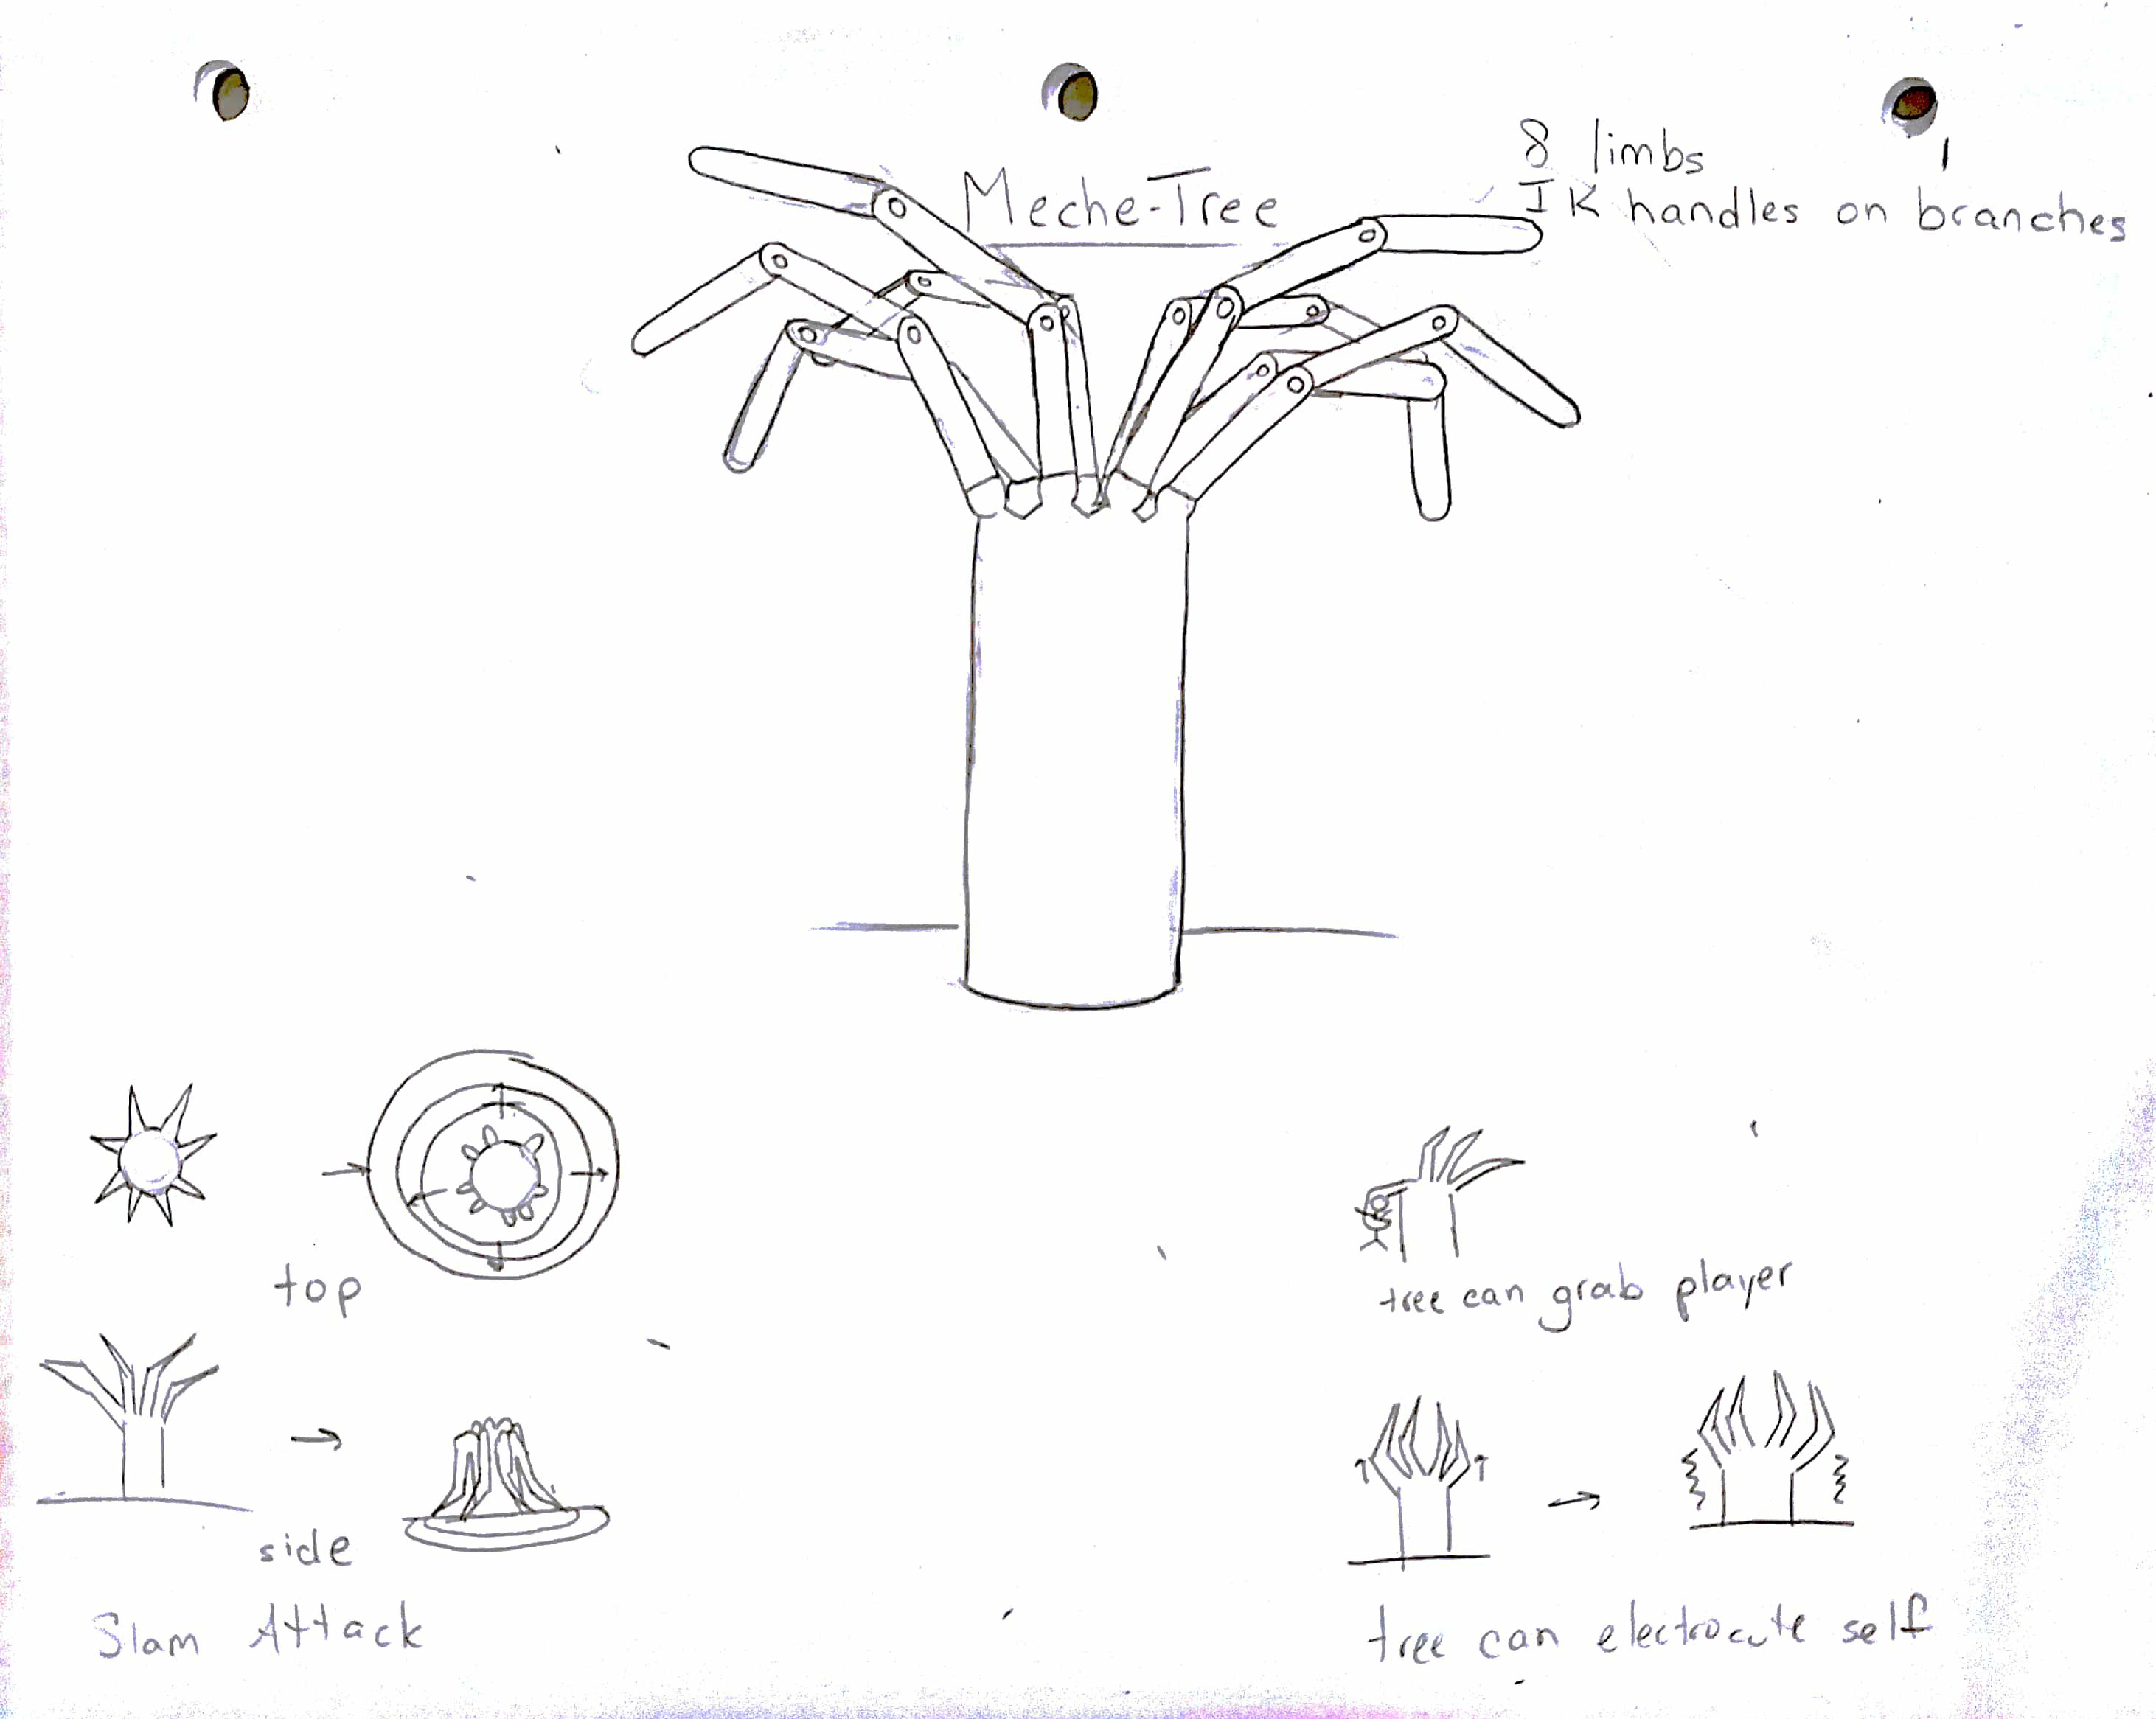 Meche-Tree
8 limbs
IK handles on branches
top
side
Slam Attack
tree can grab player
tree can electrocute self